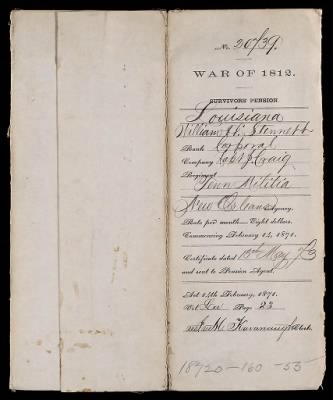 No. 20739.
WAR OF 1812.
SURVIVORS' PENSION
Louisiana
William Stennett
Rank Corporal
Company Capt J Craig
Regiment
Tenn Militia
New Orleans Agency.
Rate per month, Eight dollars.
Commencing February 14, 1871.
Certificate dated 13th May 73
and sent to Pension Agent.
Act 14th February, 1871.
Vol. Page 23
M. Kavanaugh Clerk.
18720-160-55